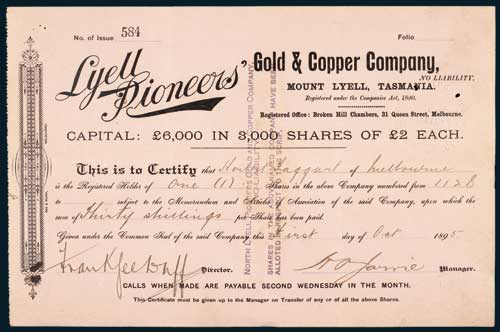 No. of Issue 584 Folio
Lyell Pioneers' Gold & Copper Company,
NO LIABILITY,
MOUNT LYELL, TASMANIA.
Registered under the Companies Act, 1890.
Registered Office: Broken Hill Chambers, 31 Queen Street, Melbourne.
CAPITAL: £6,000 IN 3,000 SHARES OF £2 EACH.
This is to Certify that Robert Taggart of Melbourne
is the Registered Holder of One (1) Shares in the above Company numbered from 1128
to subject to the Memorandum and Articles of Association of the said Company, upon which the
sum of Thirty shillings per Share has been paid.
Given under the Common Seal of the said Company this First day of Oct 1895
Director. Manager.
CALLS WHEN MADE ARE PAYABLE SECOND WEDNESDAY IN THE MONTH.
This Certificate must be given up to the Manager on Transfer of any or all the above Shares.
NORTH LYELL PIONEERS GOLD AND COPPER COMPANY,
SHARES IN THE ABOVE NAMED COMPANY HAVE BEEN
ALLOTED IN RESPECT TO THIS SCRIP.